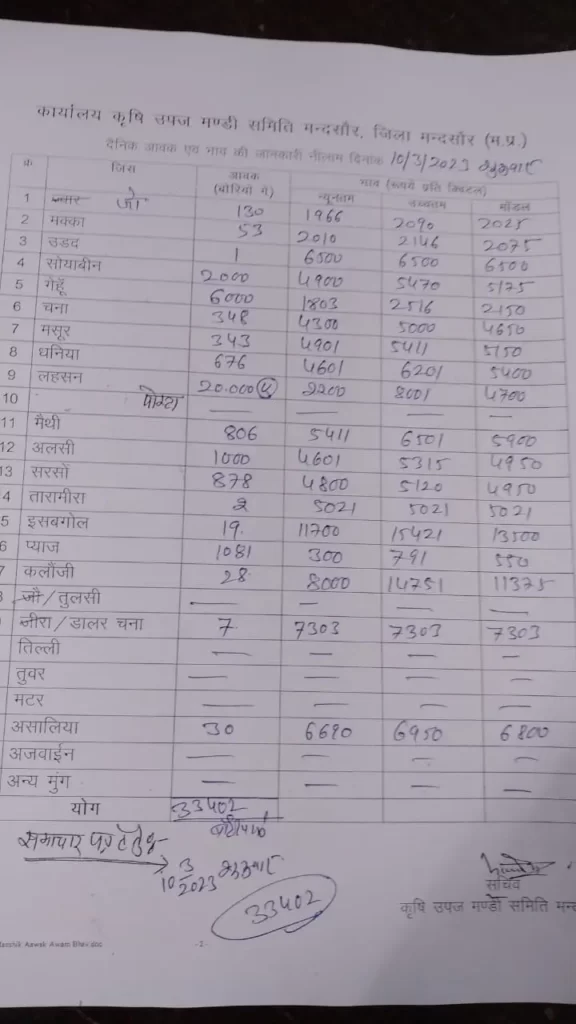 कार्यालय कृषि उपज मण्डी समिति मन्दसौर, जिला मन्दसौर (म.प्र.)
दैनिक आवक एवं भाव की जानकारी नीलाम दिनांक 10/3/2023 शुक्रवार
क्र जिंस आवक (बोरियों में) भाव (रूपये प्रति क्विंटल)
न्यूनतम उच्चतम मॉडल
1 जौ 130 1966 2090 2025
2 मक्का 53 2010 2146 2075
3 उडद 1 6500 6500 6500
4 सोयाबीन 2000 4900 5470 5175
5 गेहूँ 6000 1803 2516 2150
6 चना 348 4300 5000 4650
7 मसूर 343 4901 5411 5150
8 धनिया 676 4601 6201 5400
9 लहसन 20.000 2200 8001 4700
10 पोस्ता — — — —
11 मैथी 806 5411 6501 5900
12 अलसी 1000 4601 5315 4950
13 सरसों 878 4800 5120 4950
4 तारामीरा 2 5021 5021 5021
5 इसबगोल 19. 11700 15421 13500
6 प्याज 1081 300 791 550
7 कलौंजी 28. 8000 14751 11375
जौ/तुलसी — — — —
जीरा/डालर चना 7 7303 7303 7303
तिल्ली — — — —
तुवर — — — —
मटर — — — —
असालिया 30 6680 6950 6800
अजवाईन — — — —
अन्य मुंग — — — —
योग 33402
समाचार पत्र हेतु
10 3 2023 शुक्रवार
33402
सचिव
कृषि उपज मण्डी समिति मन्द
Aawak Awam Bhav.doc - 2 -